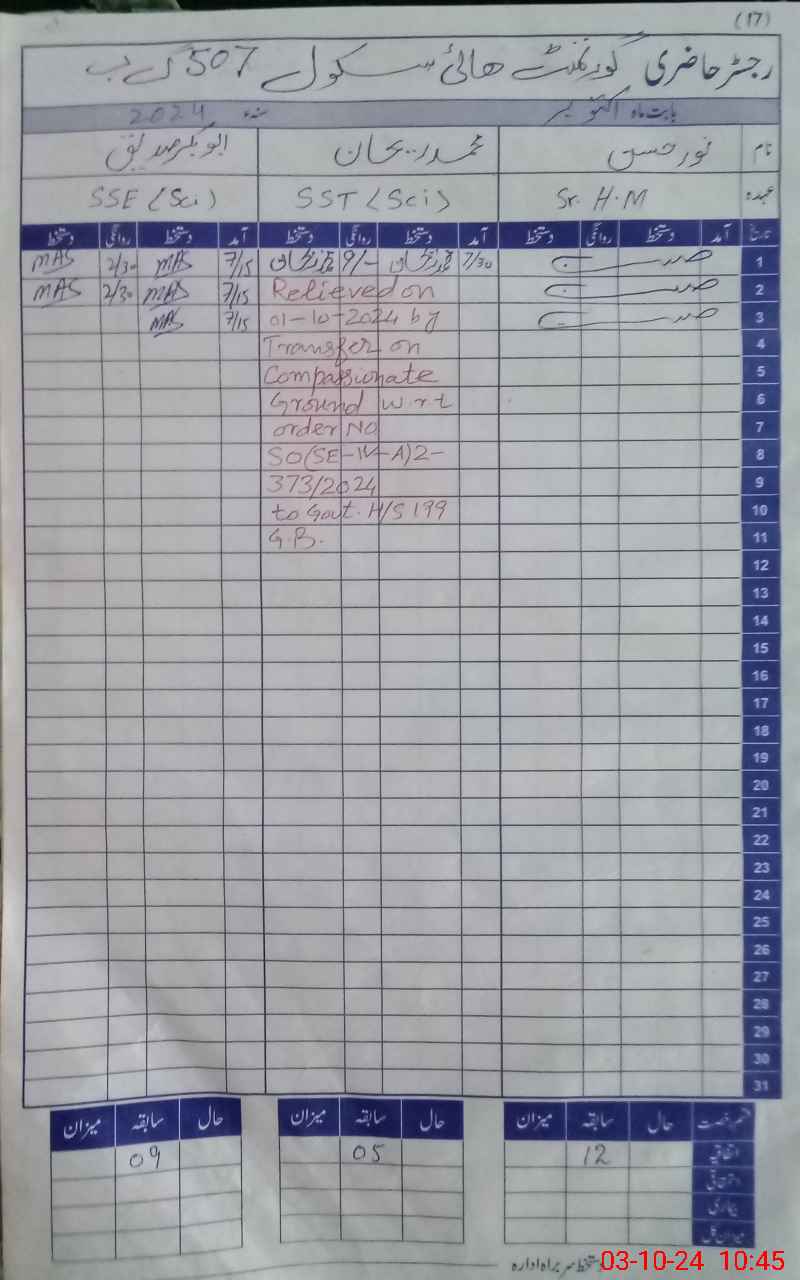 (17)
رجسٹر حاضری گورنمنٹ هائی سکول 507 گ ب
بابت ماہ اکتوبر سنہء 2024
نام نور حسن محمد ریحان ابوبکر صدیق
عہدہ Sr. H.M SST (Sci) SSE (Sci)
تاریخ آمد دستخط روانگی دستخط آمد دستخط روانگی دستخط آمد دستخط روانگی دستخط
1 7/30 9/- 7/15 MAS 2/30 MAS
2 Relieved on 7/15 MAS 2/30 MAS
3 01-10-2024 by 7/15 MAS
4 Transfer on
5 Compassionate
6 Ground w.r.t
7 order No
8 SO(SE-IV-A)2-
9 373/2024
10 to Govt. H/S 199
11 G.B.
12
13
14
15
16
17
18
19
20
21
22
23
24
25
26
27
28
29
30
31
قسم رخصت حال سابقہ میزان حال سابقہ میزان حال سابقہ میزان
اتفاقیہ 12 05 09
بیماری
میزان کل
دستخط سربراہ ادارہ
03-10-24 10:45